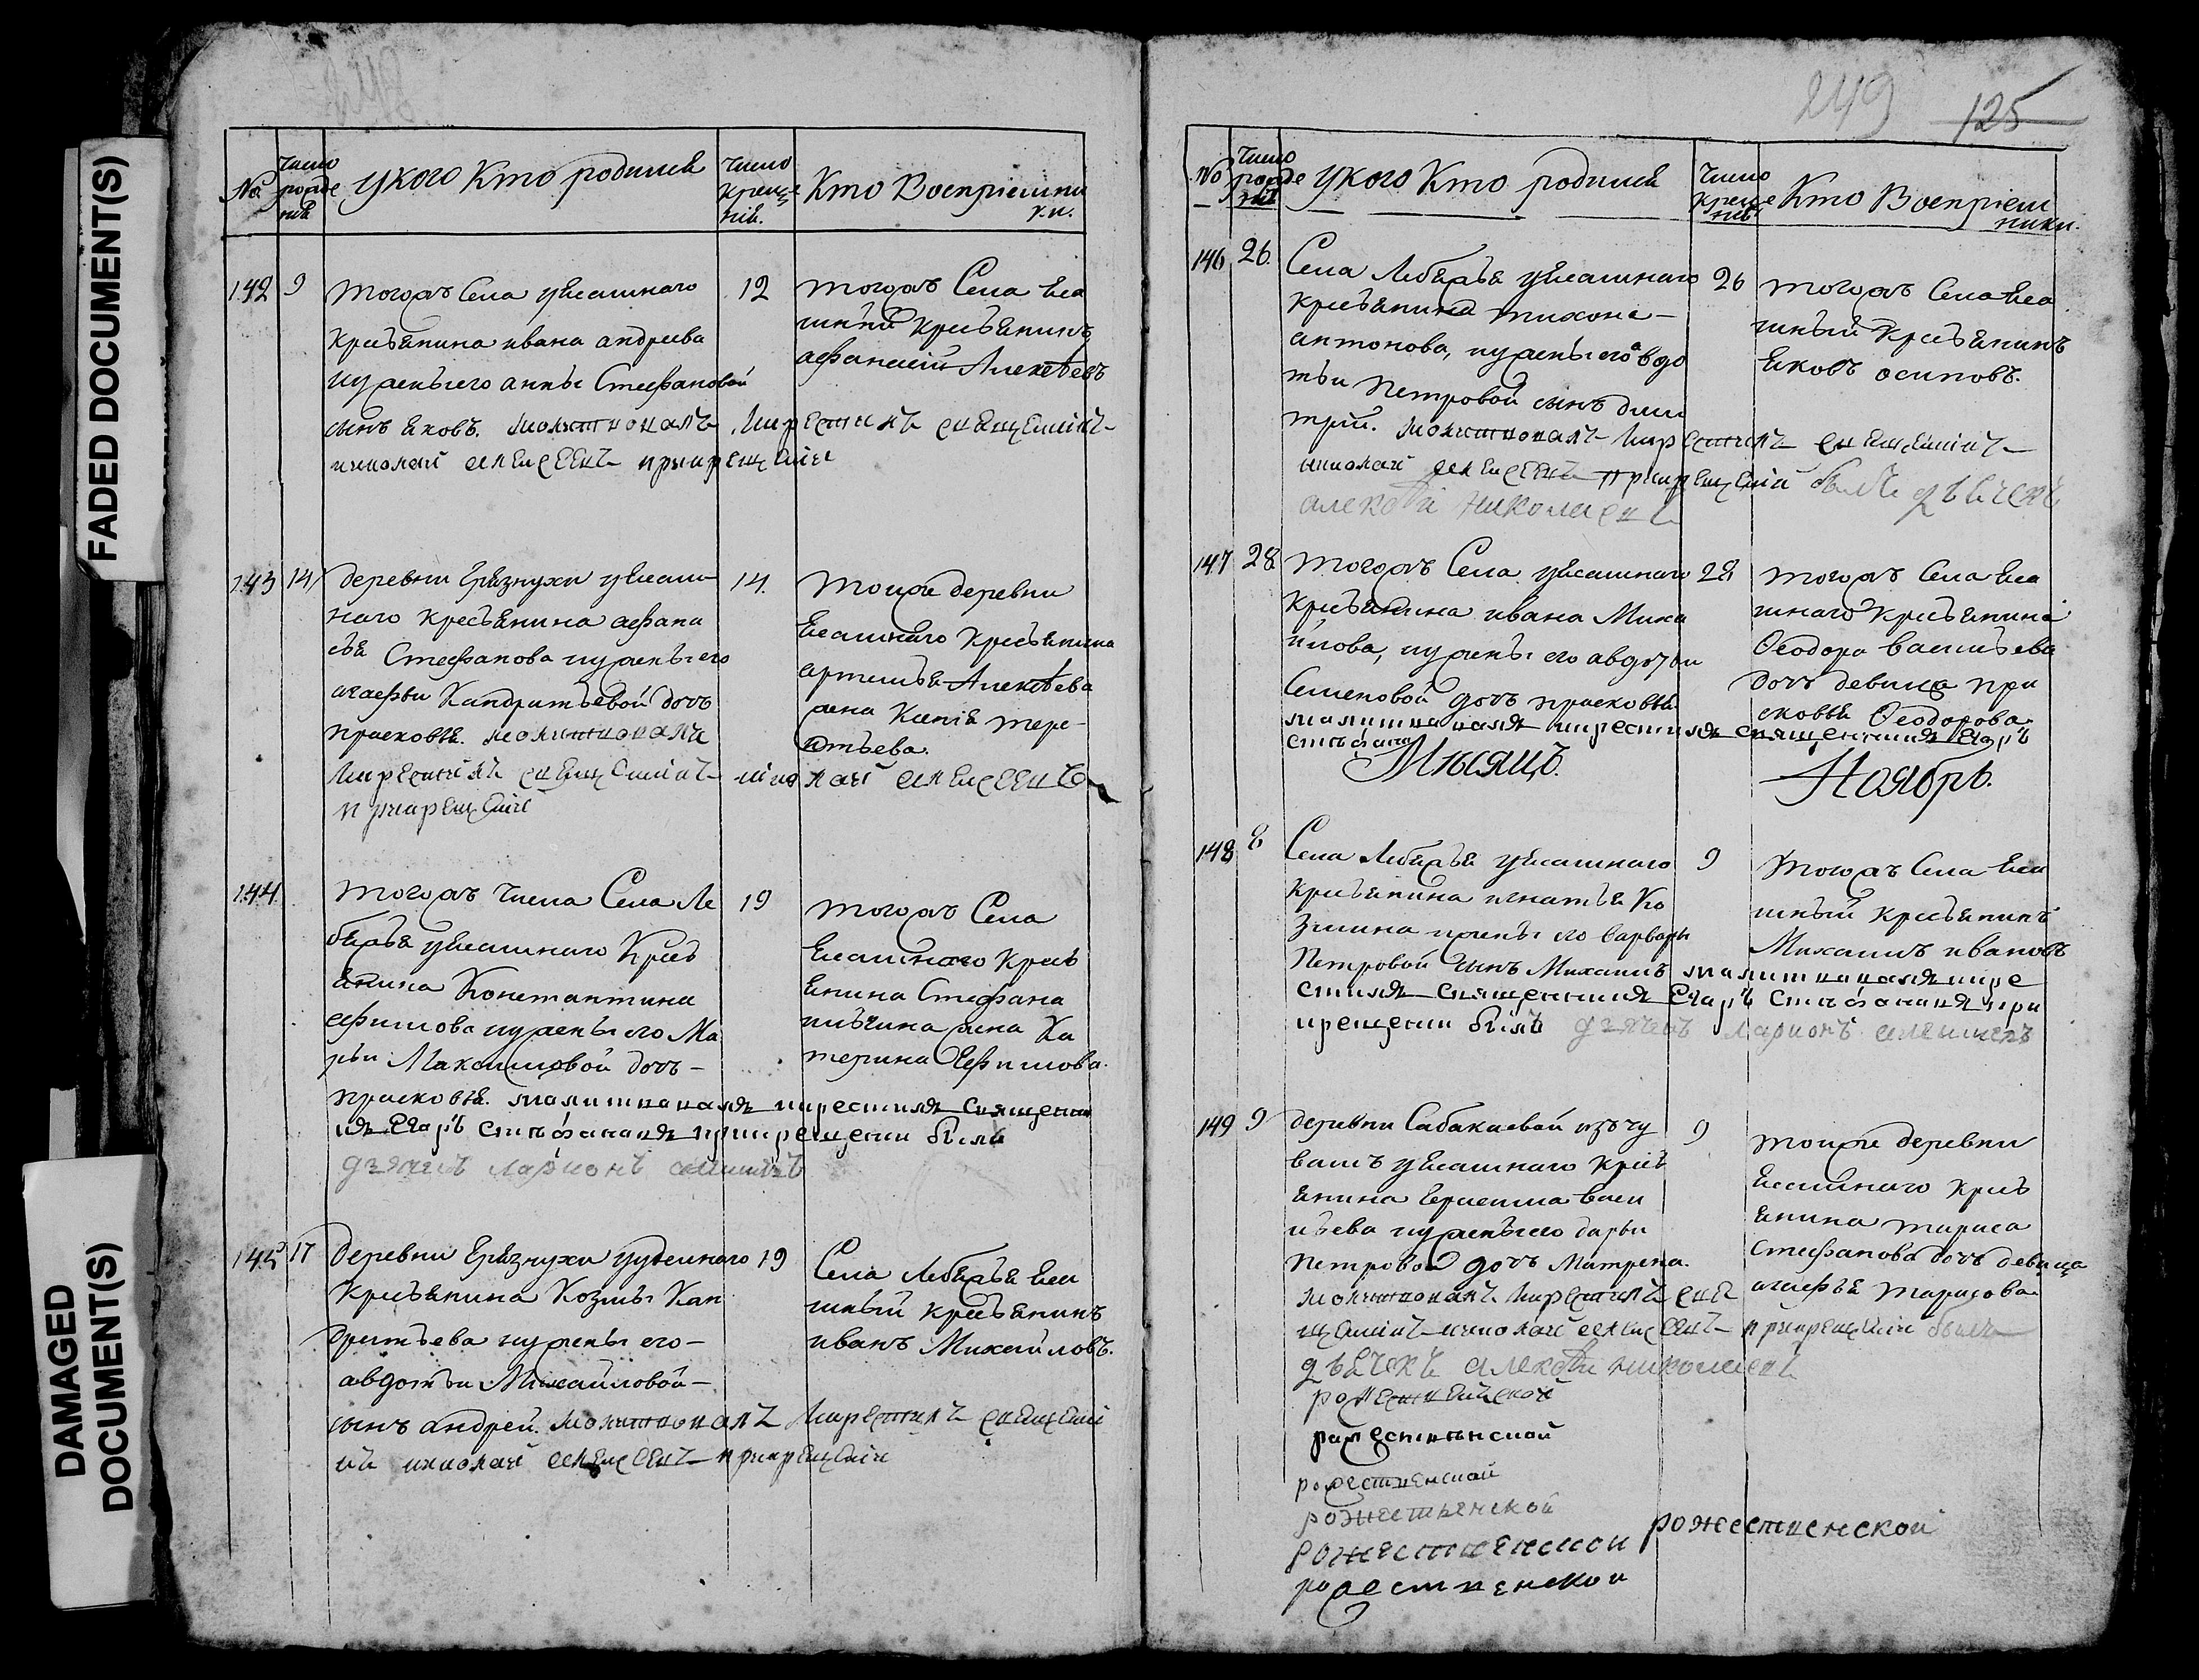 FADED DOCUMENT(S)
DAMAGED
DOCUMENT(S)
№
число
рожде
нія
у кого кто родился
число
креще
нія.
Кто Воспріемни
ки.
142 9 тогожъ Села уясашнаго
крестьянина ивана андреева
ижены его анны Стефановой
сынъ яковъ. молитвовалъ икрестилъ священникъ
николай алексеевъ прикрещеніи
12 тогожъ Села яса
шный крестьянинъ
афанасей Алексѣевъ
143 14 деревни Грязнухи уясаш
наго крестьянина афана
сья Стефанова ижены его
агафьи Кандратьевой дочь
прасковья. молитвовалъ
икрестилъ священникъ николай алексеевъ
прикрещеніи
14. тойже деревни
ясашнаго крестьянина
артемья Алексѣева
жена Ксенія тере-
нтьева.
144 тогожъ числа Села Ле
бяжья уясашнаго Кресть
янина Константина
ефимова ижены его Ма
рьи Максимовой дочь-
прасковья. малитвавалъ икрестилъ священни
къ Егоръ Стефановъ прикрещении были
дьячекъ ларионъ
19 тогожъ Села
ясашнаго кресть
янина Стефана
жена Ка
терина Ефимова.
145 17 деревни Грязнухи уудельнаго
Крестьянина Козмы Кан
дратьева ижены его-
авдотьи Михайловой-
сынъ андрей. молитвовалъ икрестилъ священни
къ николай алексеевъ прикрещеніи
19 Села Лебяжья яса
шный крестьянинъ
иванъ Михайловъ.
249 125
№
число
рожде
нія
у кого кто родился
Число
креще
нія
Кто Воспріем
ники.
146 26. Села Лебяжья уясашнаго
крестьянина тихона-
антонова, ижены его авдо
тьи Петровой сынъ дими
трій. молитвовалъ икрестилъ священникъ
николай алексеевъ прикрещеніи былъ дьячекъ
алексѣй николаевъ
26 тогожъ Села яса
шный крестьянинъ
яковъ осиповъ.
147 28 тогожъ Села уясашнаго
крестьянина ивана Миха
йлова, ижены его авдотьи
Семеновой дочь прасковья.
малитвавалъ икрестилъ священникъ Егоръ
Стефановъ
28 тогожъ Села яса
шнаго крестьянина
Ѳеодора васильева
дочь девица пра
сковья Ѳеодорова.
Мѣсяцъ. Ноябрь.
148 8 Села Лебяжья уясашнаго
крестьянина игнатья Ко
змина ижены его варвары
Петровой сынъ Михаилъ малитвавалъ икре
стилъ священникъ Егоръ Стефановъ при
крещении былъ дьячекъ ларионъ
9 тогожъ Села яса
шный крестьянинъ
Михаилъ ивановъ
149 9 деревни Сабакаевой изъ чу
вашъ уясашнаго кресть
янина Герасима васи
льева ижены его дарьи
Петровой дочь Матрена.
молитвовалъ икрестилъ свя
щенникъ николай алексеевъ прикрещеніи былъ
дьячекъ алексѣй николаевъ
9 тойже деревни
ясашнаго кресть
янина тараса
Стефанова дочь девица
агафья тарасова.
рожественской
рожественской
рожественской
рожественской
рожественской
рожественской
рожественской